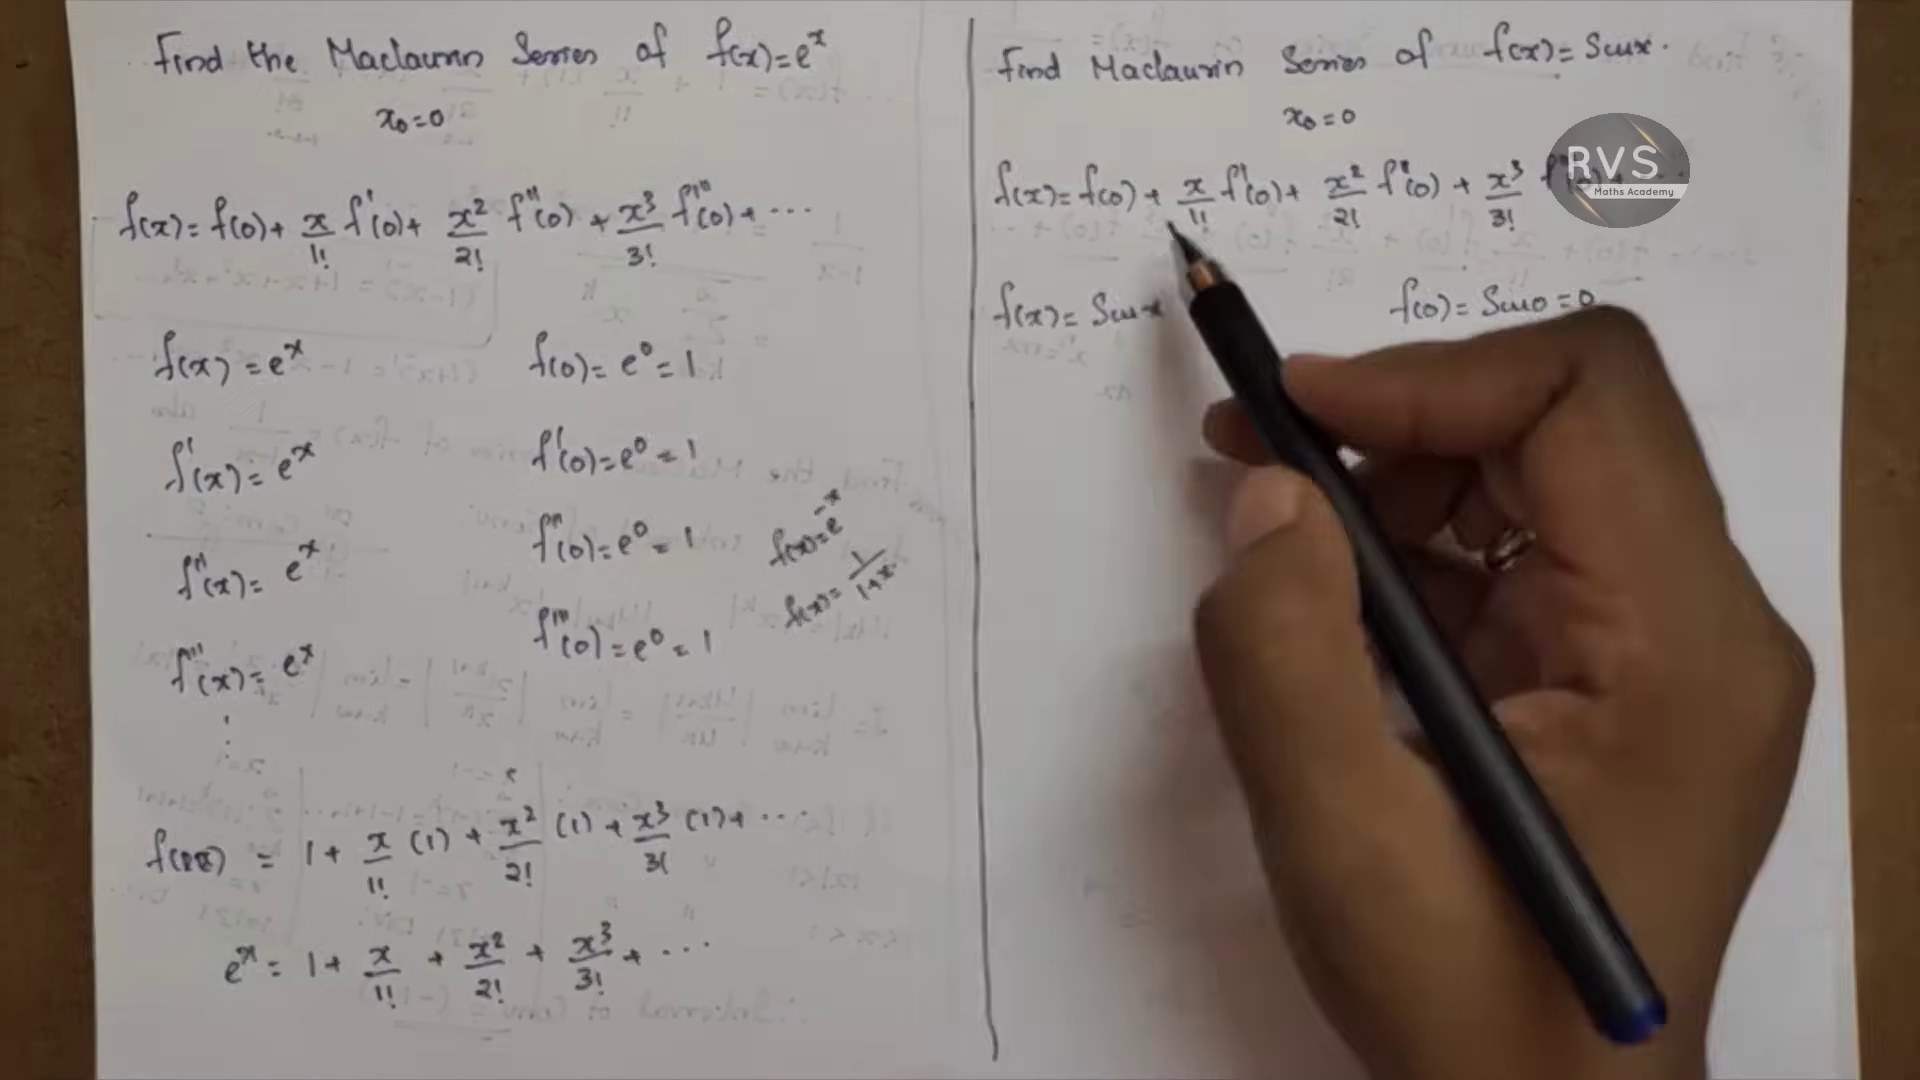 Find the Maclaurin Series of f(x)=e^x
x₀=0
f(x)= f(0)+ x/1! f'(0)+ x²/2! f''(0) + x³/3! f'''(0)+ ...
f(x) = e^x f(0)= e⁰ = 1
f'(x)= e^x f'(0)=e⁰ = 1
f''(x)= e^x f''(0)=e⁰ = 1
f'''(x)= e^x f'''(0)=e⁰ = 1
f(x)=e^-x
f(x)= 1/1+x.
= 1+ x/1! (1) + x²/2! (1) + x³/3! (1)+ ...
e^x = 1+ x/1! + x²/2! + x³/3! + ...
Find Maclaurin Series of f(x)= Sinx.
x₀=0
f(x)= f(0)+ x/1! f'(0)+ x²/2! f''(0) + x³/3!
f(x)= Sinx f(0)= Sin0 =0
RVS
Maths Academy